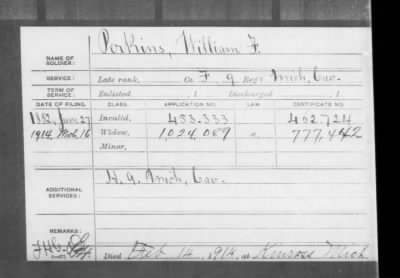 NAME OF SOLDIER: Perkins, William F.
SERVICE: Late rank, Co. F, 9 Reg't Mich. Cav.
TERM OF SERVICE: Enlisted , 1 Discharged , 1
DATE OF FILING. CLASS. APPLICATION NO. LAW. CERTIFICATE NO.
1882, June 27 Invalid, 453.333 402724
1914, Mch. 16 Widow, 1,024,089 777,442
Minor,
ADDITIONAL SERVICES: H. 9. Mich. Cav.
REMARKS:
Died Feb 14, 1914, at Kinross Mich.